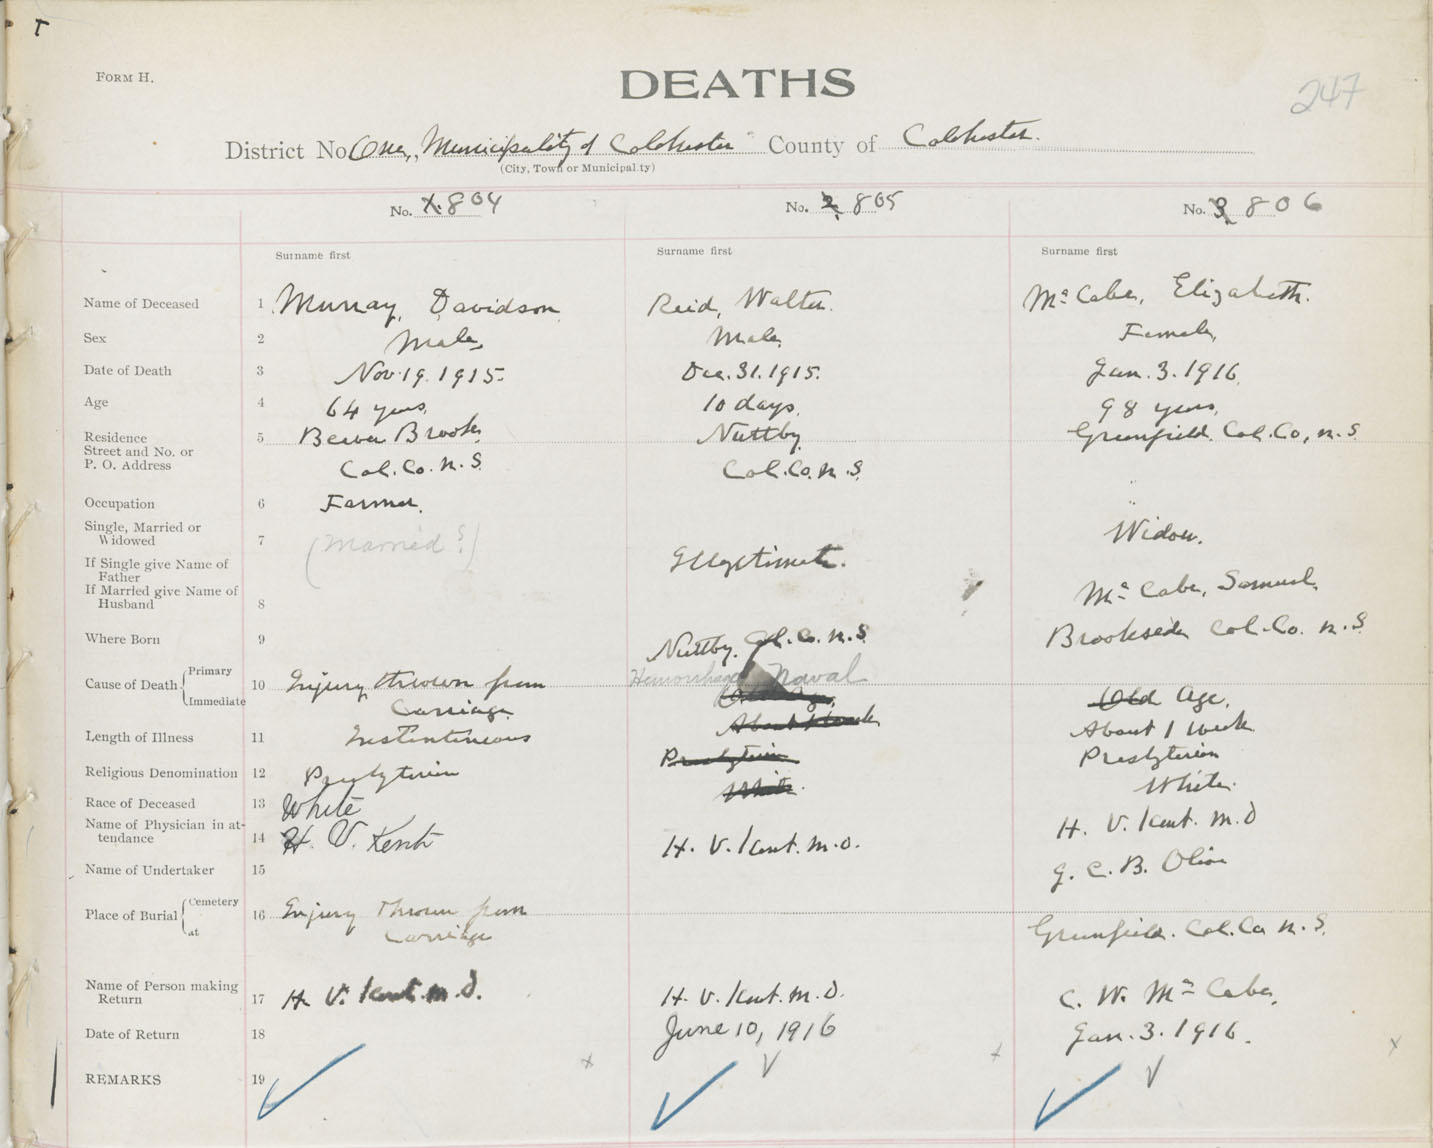 T
FORM H.
DEATHS
247
District No. One, Municipality of Colchester County of Colchester.
(City, Town or Municipality)
No. 1. 804
No. 2. 805
No. 3 806
Surname first
Surname first
Surname first
Name of Deceased 1 Murray, Davidson Reid, Walter. Mc Cabe, Elizabeth.
Sex 2 Male Male Female
Date of Death 3 Nov. 19. 1915. Dec. 31. 1915. Jan. 3. 1916.
Age 4 64 years 10 days 98 years
Residence 5 Beaver Brook Nuttby Greenfield. Col. Co, N.S.
Street and No. or
P. O. Address Col. Co. N.S. Col. Co. N.S.
Occupation 6 Farmer.
Single, Married or
Widowed 7 (Married?) Widow.
If Single give Name of
Father Illegitimate.
If Married give Name of
Husband 8 Mc Cabe, Samuel
Where Born 9 Nuttby. Col. Co. N.S. Brookside Col. Co. N.S.
Cause of Death Primary
Immediate 10 Injury thrown from Hemorrhage Naval
Carriage Old Age, Old Age,
Length of Illness 11 Instantineous About 1 week About 1 week
Religious Denomination 12 Presbyterian Presbyterian Presbyterian
Race of Deceased 13 White White. White.
Name of Physician in at-
tendance 14 H. V. Kent H. V. Kent. M.D. H. V. Kent. M.D
Name of Undertaker 15 G. C. B. Olive
Place of Burial Cemetery
at 16 Injury thrown from
Carriage Greenfield. Col. Co N.S.
Name of Person making
Return 17 H. V. Kent. M.D. H. V. Kent. M.D. C. W. Mc Cabe,
Date of Return 18 June 10, 1916 Jan. 3. 1916.
REMARKS 19